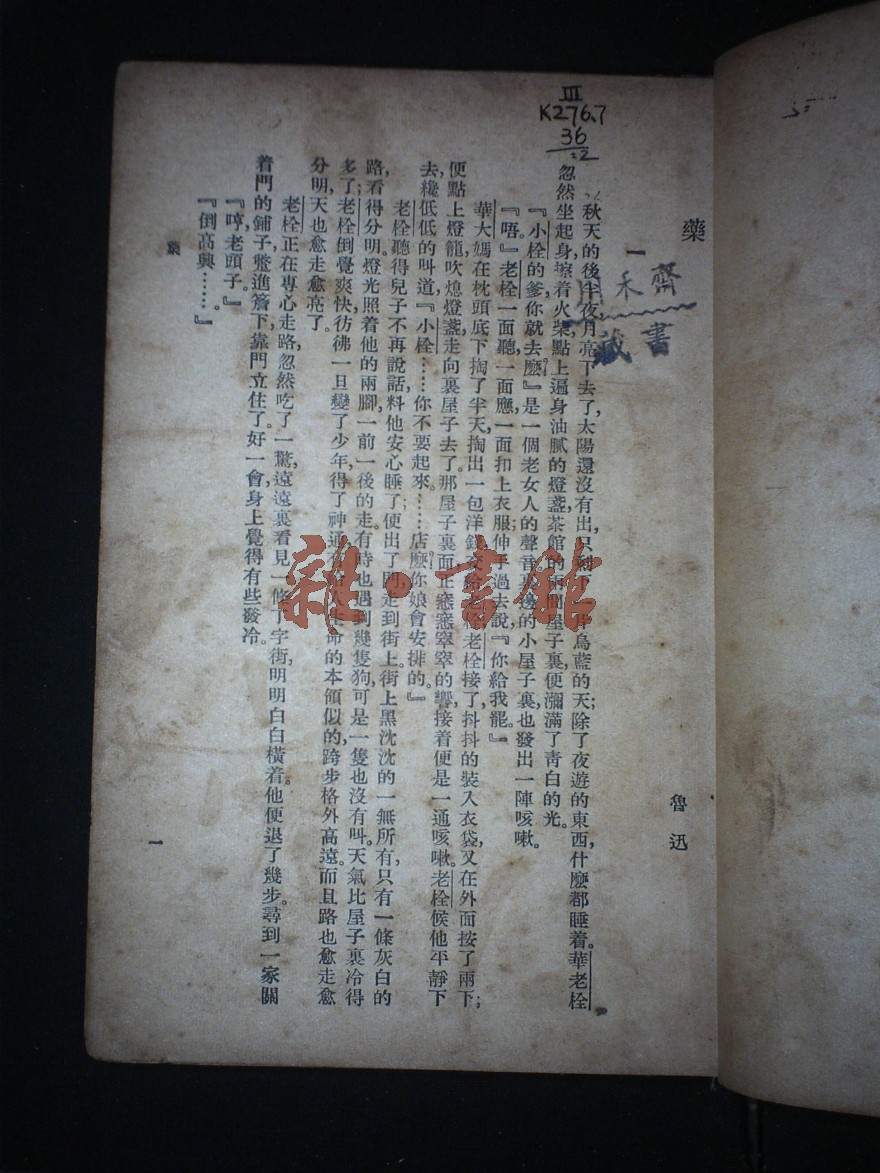 III
K276.7
36
:2
藥
魯迅
禾齋
藏書
一
秋天的後半夜,月亮下去了,太陽還沒有出,只剩下一片烏藍的天;除了夜遊的東西,什麼都睡着。華老栓
忽然坐起身,擦着火柴,點上遍身油膩的燈盞,茶館的兩間屋子裏,便瀰滿了青白的光。
『小栓的爹,你就去麼?』是一個老女人的聲音。裏邊的小屋子裏,也發出一陣咳嗽。
『唔。』老栓一面聽,一面應,一面扣上衣服;伸手過去說,『你給我罷。』
華大媽在枕頭底下掏了半天,掏出一包洋錢,交給老栓,老栓接了,抖抖的裝入衣袋,又在外面按了兩下;
便點上燈籠,吹熄燈盞,走向裏屋子去了。那屋子裏面,正窸窸窣窣的響,接着便是一通咳嗽。老栓候他平靜下
去,纔低低的叫道,『小栓……你不要起來。……店麼?你娘會安排的。』
老栓聽得兒子不再說話,料他安心睡了;便出了門,走到街上。街上黑沈沈的一無所有,只有一條灰白的
路,看得分明。燈光照着他的兩腳,一前一後的走。有時也遇到幾隻狗,可是一隻也沒有叫。天氣比屋子裏冷得
多了;老栓倒覺爽快,彷彿一旦變了少年,得了神通,有給人生命的本領似的,跨步格外高遠。而且路也愈走愈
分明,天也愈走愈亮了。
老栓正在專心走路,忽然吃了一驚,遠遠裏看見一條丁字街,明明白白橫着。他便退了幾步,尋到一家關
着門的鋪子,蹩進簷下,靠門立住了。好一會,身上覺得有些發冷。
『哼,老頭子。』
『倒高興……。』
藥
一
雜·書館